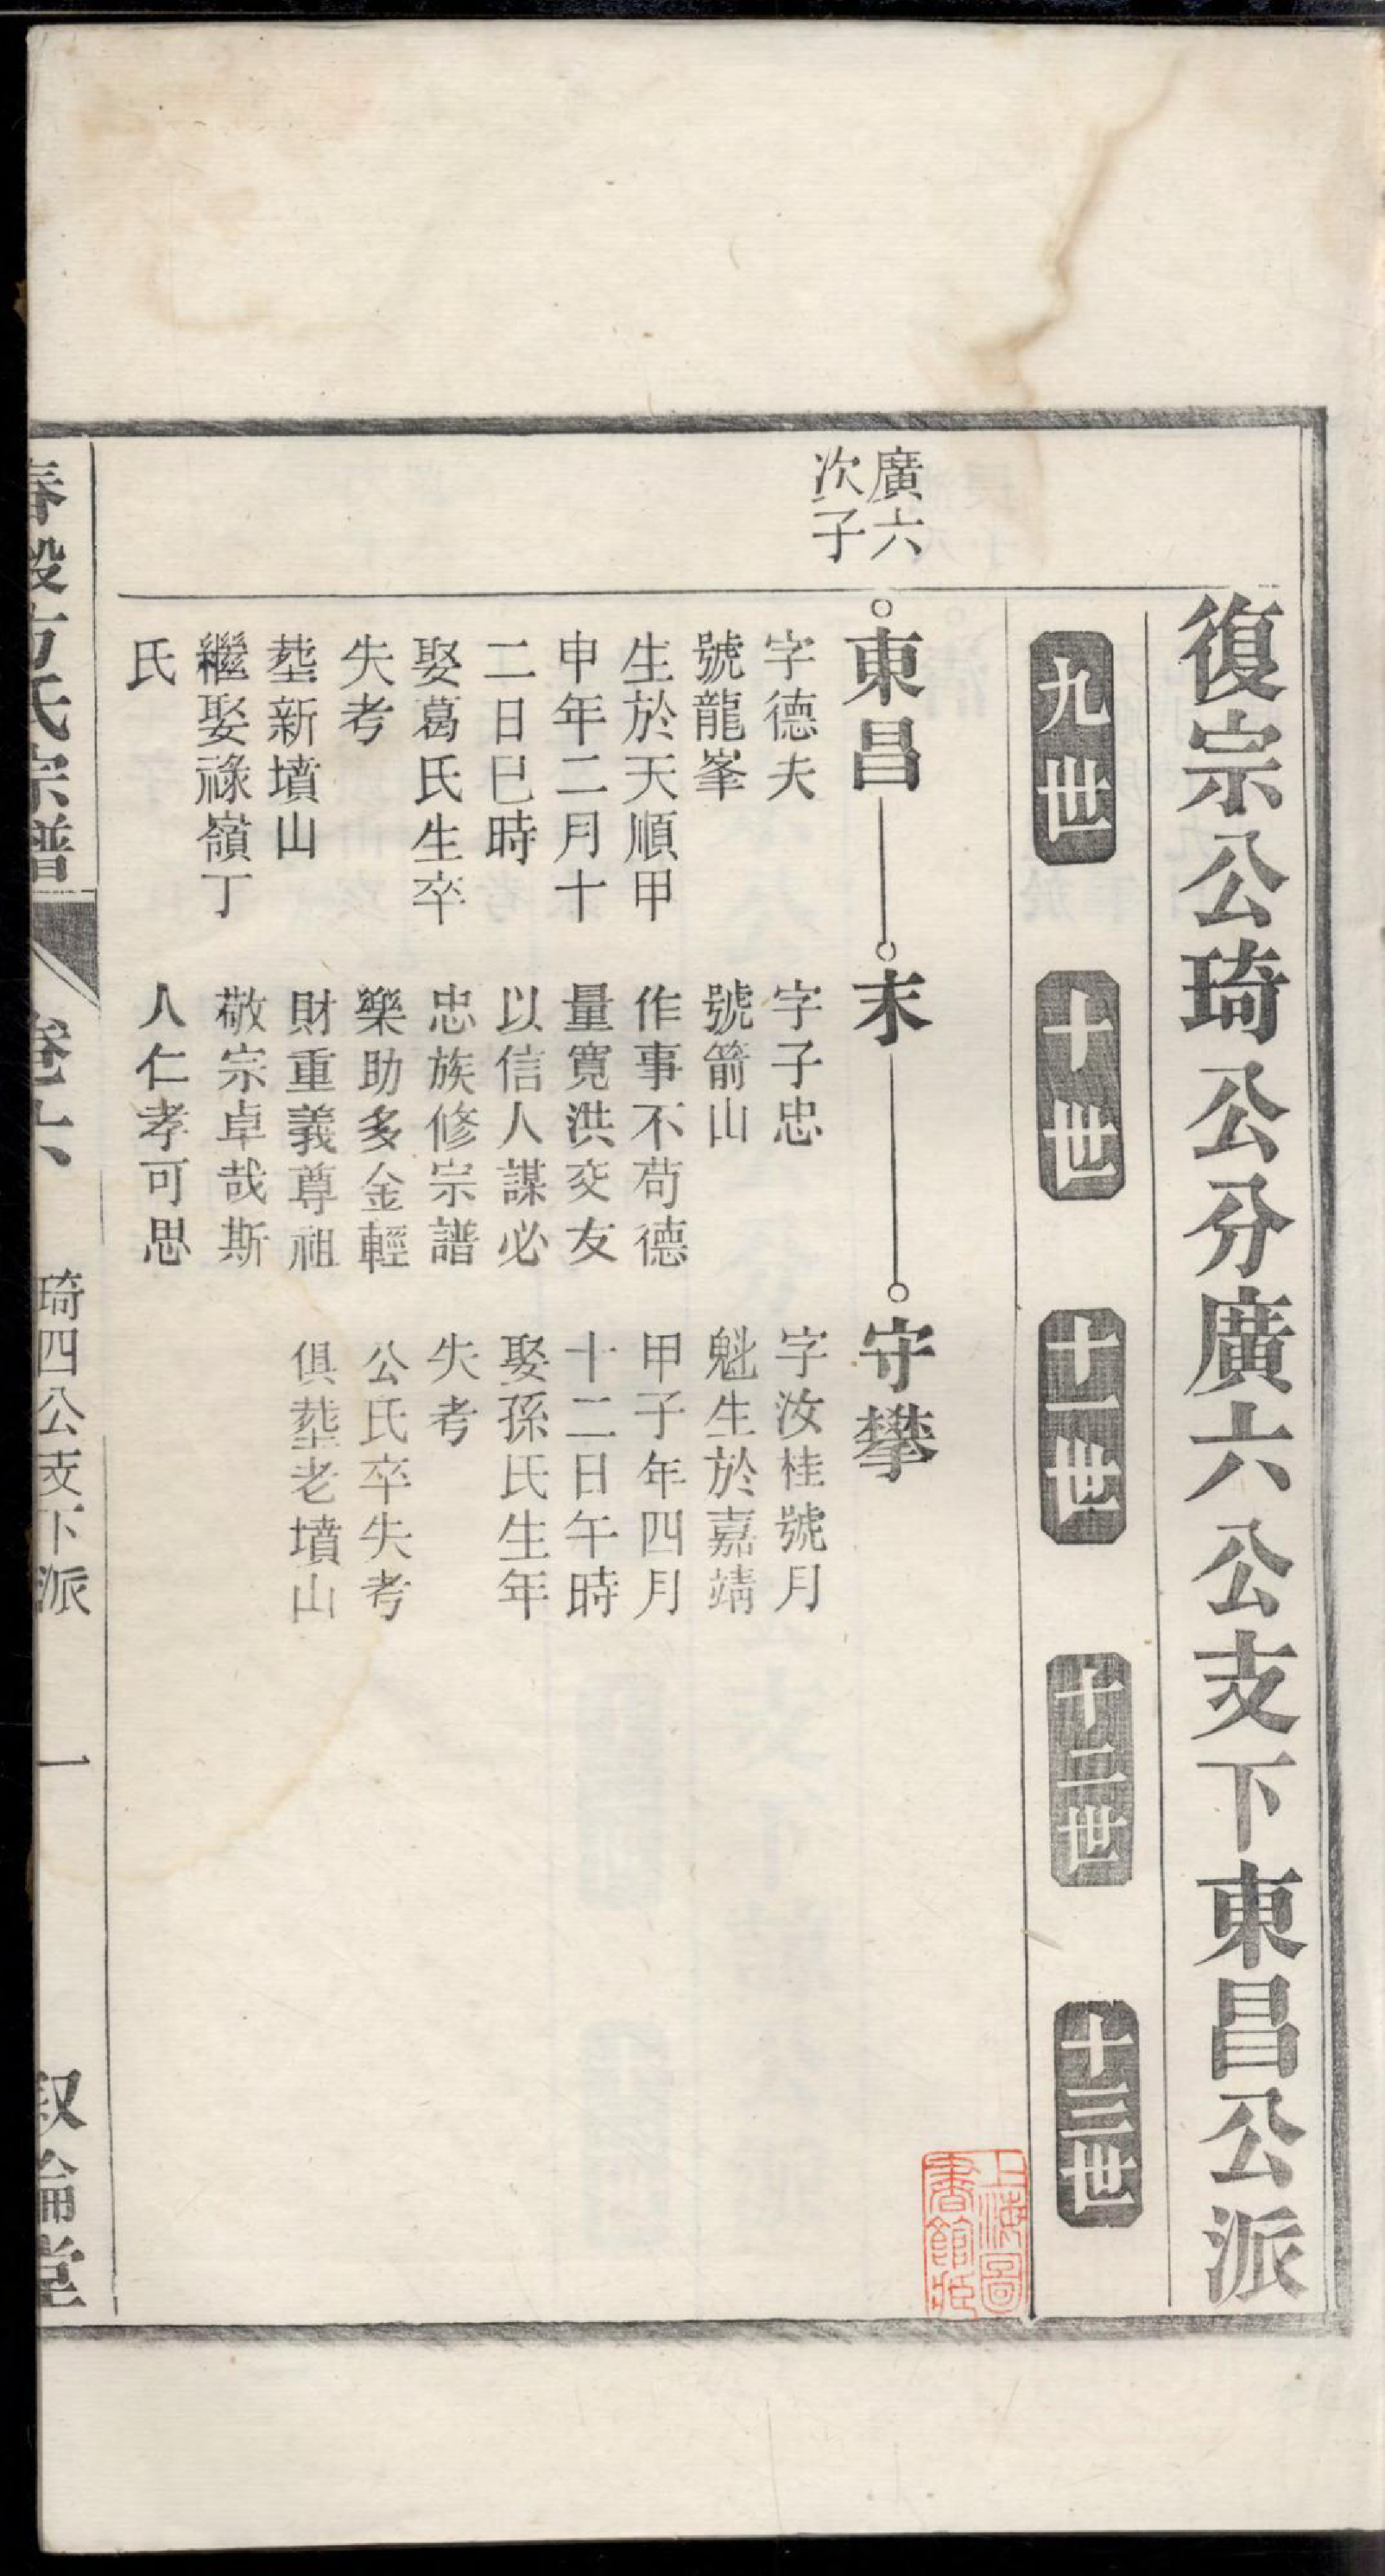 復宗公琦公分廣六公支下東昌公派
九世
十世
十一世
十二世
十三世
廣六
次子
東昌
字德夫
號龍峯
生於天順甲
申年二月十
二日巳時
娶葛氏生卒
失考
塟新墳山
繼娶祿嶺丁
氏
末
字子忠
號箭山
作事不苟德
量寬洪交友
以信人謀必
忠族修宗譜
樂助多金輕
財重義尊祖
敬宗卓哉斯
人仁孝可思
守攀
字汝桂號月
魁生於嘉靖
甲子年四月
十二日午時
娶孫氏生年
失考
公氏卒失考
俱塟老墳山
上海圖
書館藏
春穀方氏宗譜
卷六
琦四公支下派
一
敘倫堂